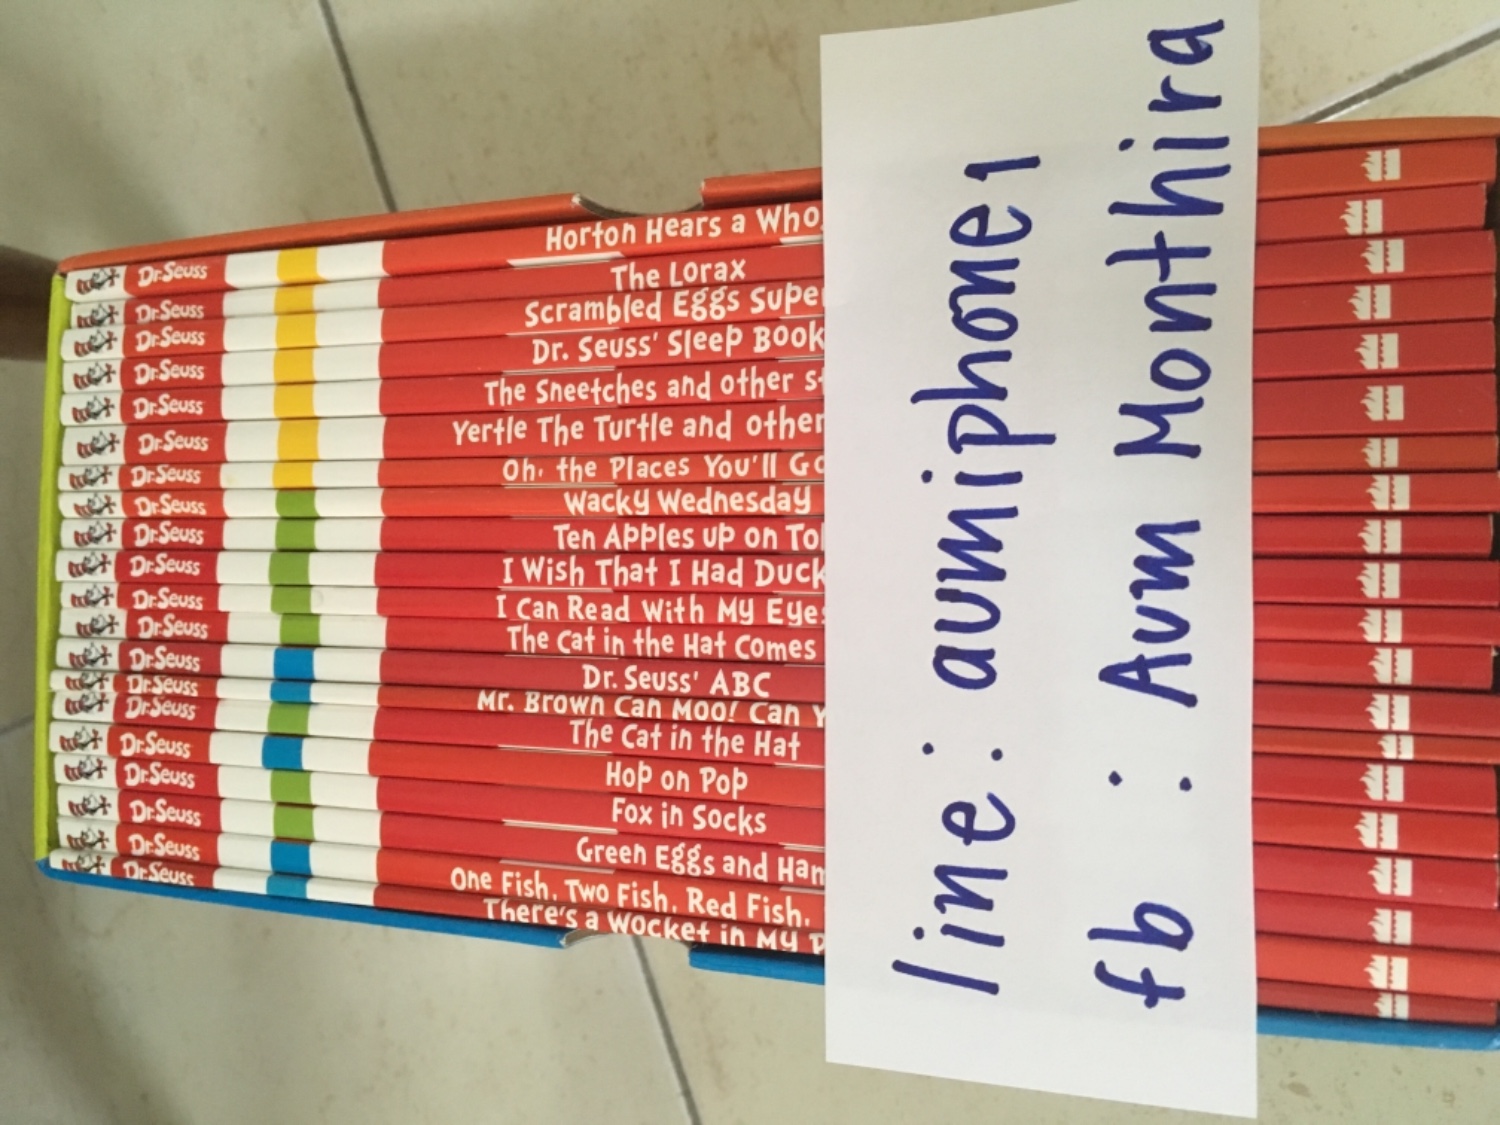 Dr. Seuss Horton Hears a Who
Dr. Seuss The Lorax
Dr. Seuss Scrambled Eggs Supe
Dr. Seuss Dr. Seuss' Sleep Book
Dr. Seuss The Sneetches and other s
Dr. Seuss Yertle The Turtle and other
Dr. Seuss Oh, the Places You'll Go
Dr. Seuss Wacky Wednesday
Dr. Seuss Ten Apples up on To
Dr. Seuss I Wish That I Had Duck
Dr. Seuss I Can Read With My Eyes
Dr. Seuss The Cat in the Hat Comes
Dr. Seuss Dr. Seuss' ABC
Dr. Seuss Mr. Brown Can Moo! Can Y
Dr. Seuss The Cat in the Hat
Dr. Seuss Hop on Pop
Dr. Seuss Fox in Socks
Dr. Seuss Green Eggs and Ham
Dr. Seuss One Fish, Two Fish, Red Fish,
Dr. Seuss There's a Wocket in My P
line : aumiphone1
fb : Aum Monthira